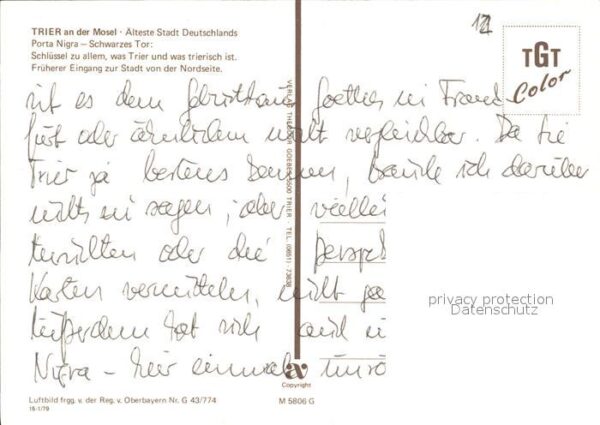 TRIER an der Mosel · Älteste Stadt Deutschlands
Porta Nigra – Schwarzes Tor:
Schlüssel zu allem, was Trier und was trierisch ist.
Früherer Eingang zur Stadt von der Nordseite.
12
TGT
Color
ist es dem Geburtshaus Goethes in Frank
furt oder ähnlichem nicht vergleichbar. Da Sie
Trier ja bestens kennen, brauche ich darüber
nichts zu sagen; aber viellei
oder die perspek
Karten vermitteln, nicht
Außerdem hat sich auch
Nigra – hier einmal
VERLAG THEATER GOEBEL 5500 TRIER · TEL. (0651) 73638
privacy protection
Datenschutz
av
Copyright
Luftbild frgg. v. der Reg. v. Oberbayern Nr. G 43/774
M 5806 G
15/1/79